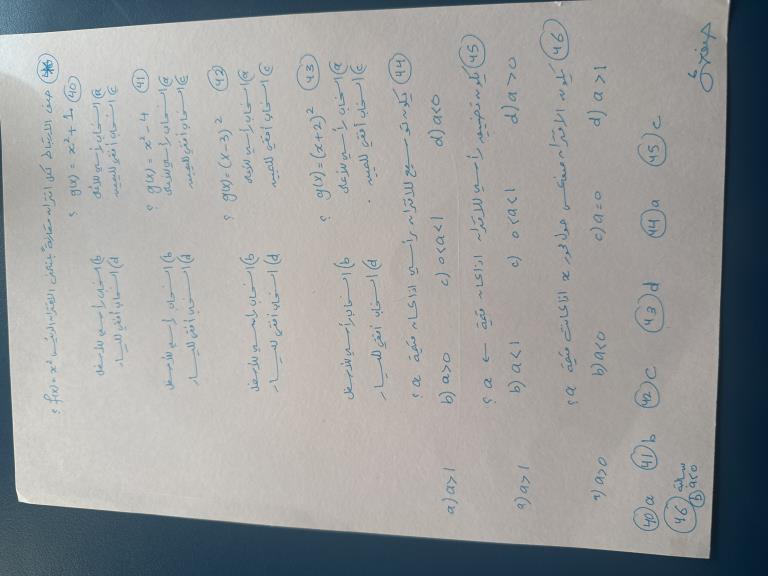 صف الارتباط كل اقتران مقارنة بمنحنى الاقتران الرئيس f(x) = x² ؟
40 g(x) = x² + 1 ؟
a) انسحاب رأسي للأعلى b) انسحاب رأسي للأسفل
c) انسحاب أفقي لليمين d) انسحاب أفقي لليسار
41 g(x) = x² - 4 ؟
a) انسحاب رأسي للأعلى b) انسحاب رأسي للأسفل
c) انسحاب أفقي لليمين d) انسحاب أفقي لليسار
42 g(x) = (x-3)² ؟
a) انسحاب رأسي للأعلى b) انسحاب رأسي للأسفل
c) انسحاب أفقي لليمين d) انسحاب أفقي لليسار
43 g(x) = (x+2)² ؟
a) انسحاب رأسي للأعلى b) انسحاب رأسي للأسفل
c) انسحاب أفقي لليمين d) انسحاب أفقي لليسار
44 يكون توسيع للاقتران رأسي اذا كانت قيمة a ؟
a) a>1 b) a>0 c) 0<a<1 d) a<0
45 يكون تضييق رأسي للاقتران اذا كانت قيمة a ؟
a) a>1 b) a<1 c) 0<a<1 d) a>0
46 يكون الاقتران منعكس حول محور x اذا كانت قيمة a ؟
a) a>0 b) a<0 c) a=0 d) a>1
40 a 41 b 42 c 43 d 44 a 45 c
46 سالبة
b) a<0